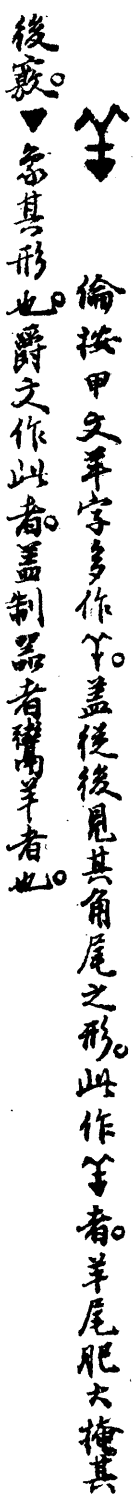 倫按甲文羊字多作𦍌。蓋從後見其角尾之形。此作者。羊尾肥大掩其
後竅。▼象其形也。爵文作此者。蓋制器者鬻羊者也。